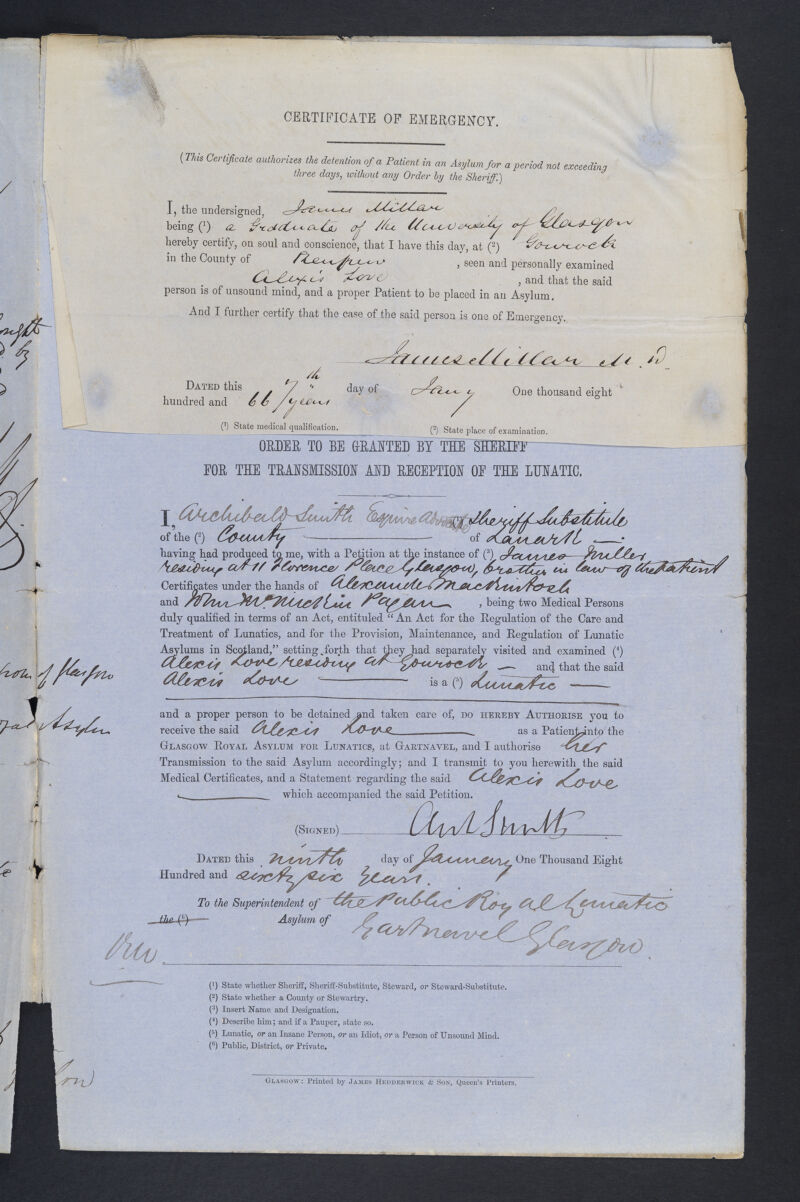 CERTIFICATE OF EMERGENCY.
(This Certificate authorizes the detention of a Patient in an Asylum for a period not exceeding
three days, without any Order by the Sheriff.)
I, the undersigned, James Millar
being (1) a Graduate of the University of Glasgow
hereby certify, on soul and conscience, that I have this day, at (2) Gourock
in the County of Renfrew, seen and personally examined
Alexis Love, and that the said
person is of unsound mind, and a proper Patient to be placed in an Asylum.
And I further certify that the case of the said person is one of Emergency.
James Millar M.D.
DATED this 7th day of Jany One thousand eight
hundred and 66 years
(1) State medical qualification. (2) State place of examination.
ORDER TO BE GRANTED BY THE SHERIFF
FOR THE TRANSMISSION AND RECEPTION OF THE LUNATIC.
I, Archibald Smith Esquire Advocate Sheriff Substitute
of the (2) County of Lanark
having had produced to me, with a Petition at the instance of (3) James Miller
residing at 11 Florence Place Glasgow, brother in law of the patient
Certificates under the hands of Alexander Mackintosh
and John Pagan, being two Medical Persons
duly qualified in terms of an Act, entituled "An Act for the Regulation of the Care and
Treatment of Lunatics, and for the Provision, Maintenance, and Regulation of Lunatic
Asylums in Scotland," setting forth that they had separately visited and examined (4)
Alexis Love residing at Gourock — and that the said
Alexis Love — is a (5) Lunatic —
and a proper person to be detained and taken care of, DO HEREBY AUTHORISE you to
receive the said Alexis Love as a Patient into the
GLASGOW ROYAL ASYLUM FOR LUNATICS, AT GARTNAVEL, and I authorise her
Transmission to the said Asylum accordingly; and I transmit to you herewith the said
Medical Certificates, and a Statement regarding the said Alexis Love
which accompanied the said Petition.
(SIGNED) Smith
DATED this ninth day of January One Thousand Eight
Hundred and sixty six years.
To the Superintendent of the Public Royal Lunatic
the (6) Asylum of Gartnavel Glasgow.
(1) State whether Sheriff, Sheriff-Substitute, Steward, or Steward-Substitute.
(2) State whether a County or Stewartry.
(3) Insert Name and Designation.
(4) Describe him; and if a Pauper, state so.
(5) Lunatic, or an Insane Person, or an Idiot, or a Person of Unsound Mind.
(6) Public, District, or Private.
GLASGOW: Printed by JAMES HEDDERWICK & SON, Queen's Printers.
by
of Glasgow
Asylum